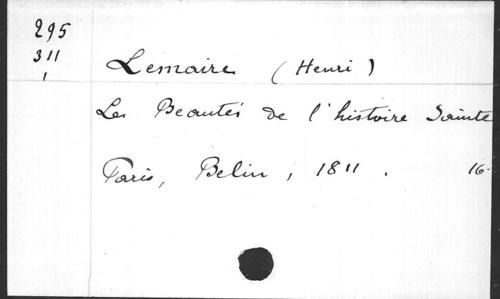 295
311
1
Lemaire (Henri)
Les Beautés de l'histoire Sainte
Paris, Belin, 1811. 16